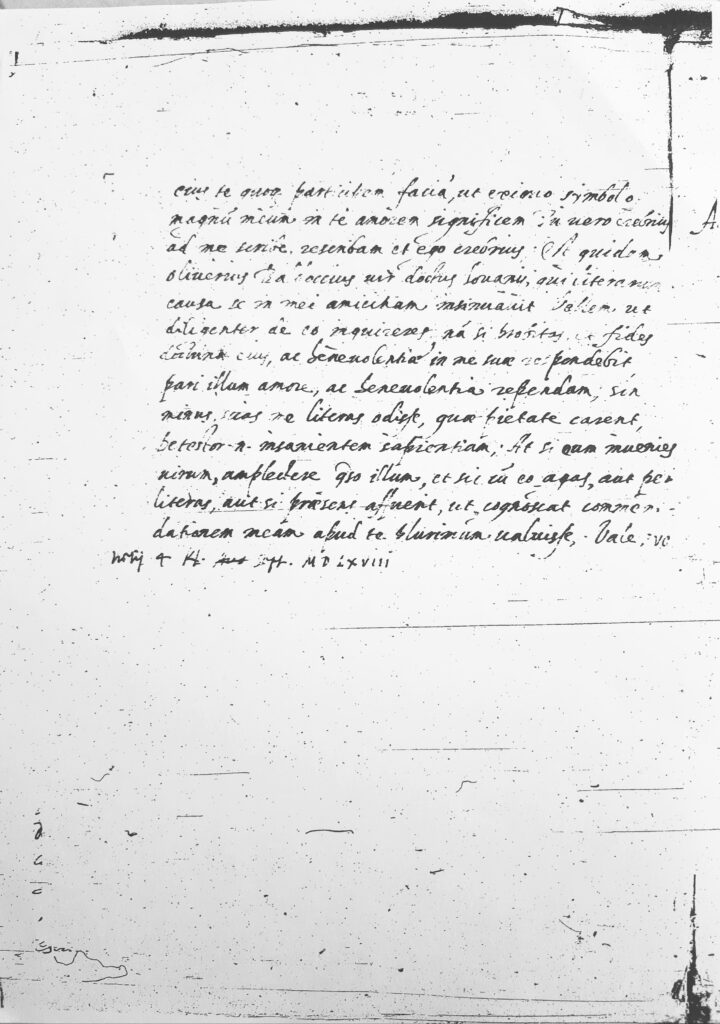 eius te quoq participem faciā, ut eximio symbolo
magnū meum in te amorem significem Tu vero crebrius
ad me scribe, rescribam et ego crebrius. Est quidam
oliverius vir doctus Lovanii, qui literarum
causa se in mei amicitiam insinuavit Velim ut
diligenter de eo inquireres, nā si probitas et fides
doctrinæ eius, ac benevolentiæ in me suæ respondebit
pari illum amore, ac benevolentia rependam, sin
minus, scias me literas odisse, quæ pietate carent,
detestor n. insanientem sapientiam, At si eum invenies
virum, amplectere qso illum, et sic cū eo agas, aut per
literas, aut si præsens affuerit, ut cognoscat commēn-
dationem meam apud te plurimum valuisse. Vale, Ve
netij 4 K. Aug Sept. MDLXVIII
A